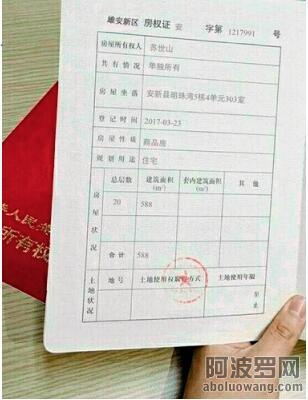 雄安新区 房权证 安 字第 1217991 号
房屋所有权人 苏世山
共有情况 单独所有
房屋坐落 安新县明珠湾5栋4单元303室
登记时间 2017-03-23
房屋性质 商品房
规划用途 住宅
房屋状况
总层数 建筑面积 (m²) 套内建筑面积 (m²) 其他
20 588
合计 588
土地状况
地号 土地使用年限
至
止
人民共
所有权
阿波罗网
aboluowang.com